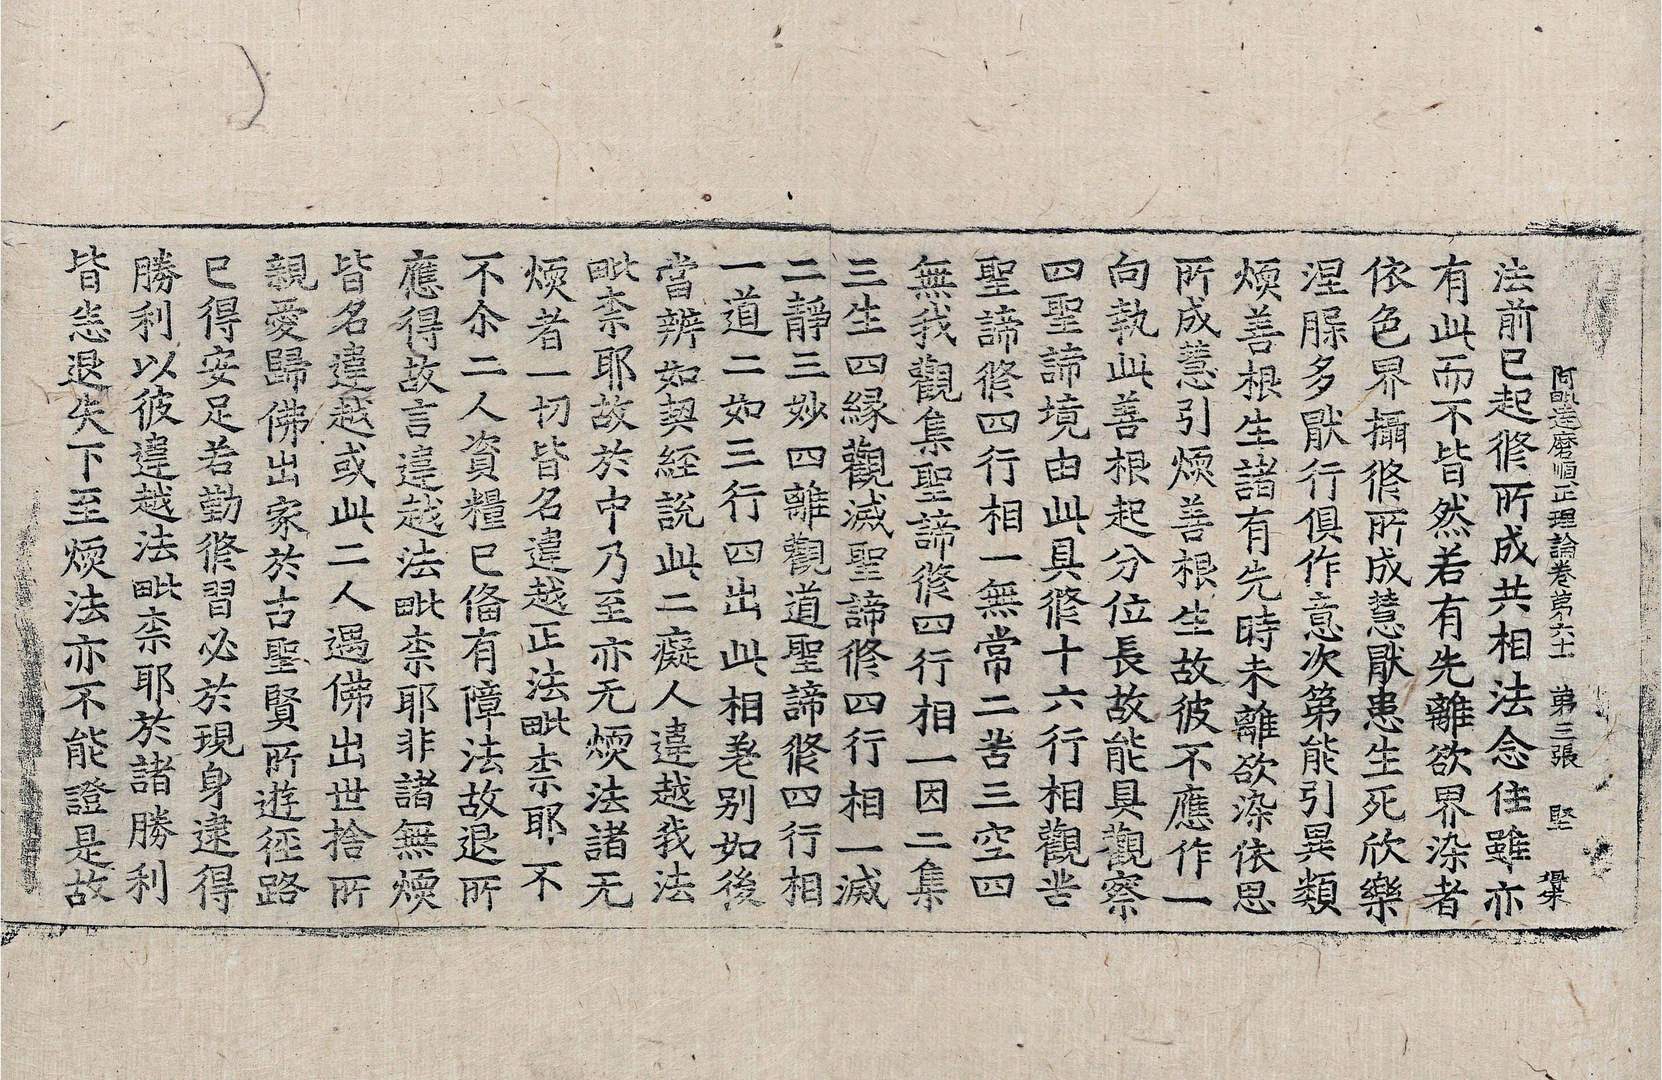 阿毗達磨順正理論卷第六十一 第三張 堅
法前已起修所成共相法念住雖亦
有此而不皆然若有先離欲界染者
依色界攝修所成慧猒患生死欣樂
涅槃多猒行俱作意次第能引異類
煗善根生諸有先時未離欲染依思
所成慧引煗善根生故彼不應作一
向執此善根起分位長故能具觀察
四聖諦境由此具修十六行相觀苦
聖諦修四行相一無常二苦三空四
無我觀集聖諦修四行相一因二集
三生四緣觀滅聖諦修四行相一滅
二靜三妙四離觀道聖諦修四行相
一道二如三行四出此相差別如後
當辨如契經說此二癡人違越我法
毗柰耶故於中乃至亦无煗法諸无
煗者一切皆名違越正法毗柰耶不
不尒二人資糧已俻有障法故退所
應得故言違越法毗柰耶非諸無煗
皆名違越或此二人遇佛出世捨所
親愛歸佛出家於古聖賢所遊徑路
已得安足若勤修習必於現身逮得
勝利以彼違越法毗柰耶於諸勝利
皆悉退失下至煗法亦不能證是故